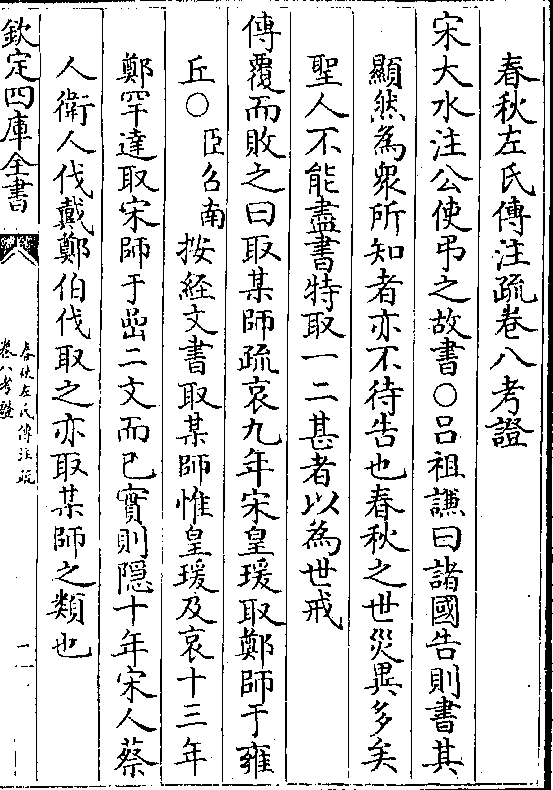 春秋左氏傳注疏卷八考證
宋大水注公使弔之故書○呂祖謙曰諸國告則書其
顯然為衆所知者亦不待告也春秋之世災異多矣
聖人不能盡書特取一二甚者以為世戒
傳覆而敗之曰取某師疏哀九年宋皇瑗取鄭師于雍
丘○臣召南按經文書取某師惟皇瑗及哀十三年
鄭罕達取宋師于喦二文而已實則隠十年宋人蔡
人衛人伐戴鄭伯伐取之亦取某師之類也
欽定四庫全書
春秋左氏傳注疏
卷八考證
一